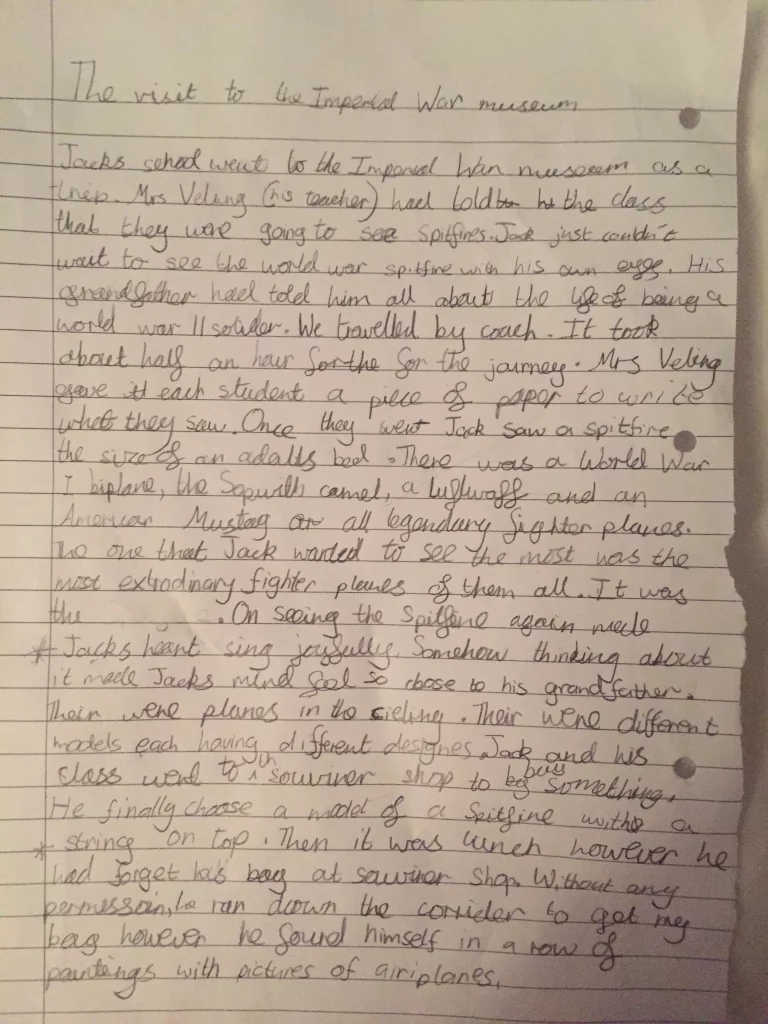 The visit to the Imperial War museum
Jacks school went to the Imperial War museum as a
trip. Mrs Veling (his teacher) had told the class
that they were going to see Spitfires. Jack just couldn't
wait to see the world war spitfire with his own eyes. His
grandfather had told him all about the life of being a
world war II solider. We travelled by coach. It took
about half an hour for the for the journey. Mrs Veling
gave it each student a piece of paper to write
what they saw. Once they went Jack saw a spitfire
the size of an adults bed. There was a World War
I biplane, the Sopwith camel, a luftwaff and an
American Mustag ar all legendary fighter planes.
The one that Jack wanted to see the most was the
most extrodinary fighter planes of them all. It was
the . On seeing the Spitfire again made
* Jacks heart sing joyfully. Somehow thinking about
it made Jacks mind feel so close to his grandfather.
Their were planes in the cieling. Their were different
models each having different designes. Jack and his
class went to souviner shop to buy something.
He finally choose a model of a Spitfire withe a
* string on top. Then it was lunch however he
had forget his bag at souviner shop. Without any
permessain, he ran down the corrider to get my
bag however he found himself in a row of
paintings with pictures of airiplanes.